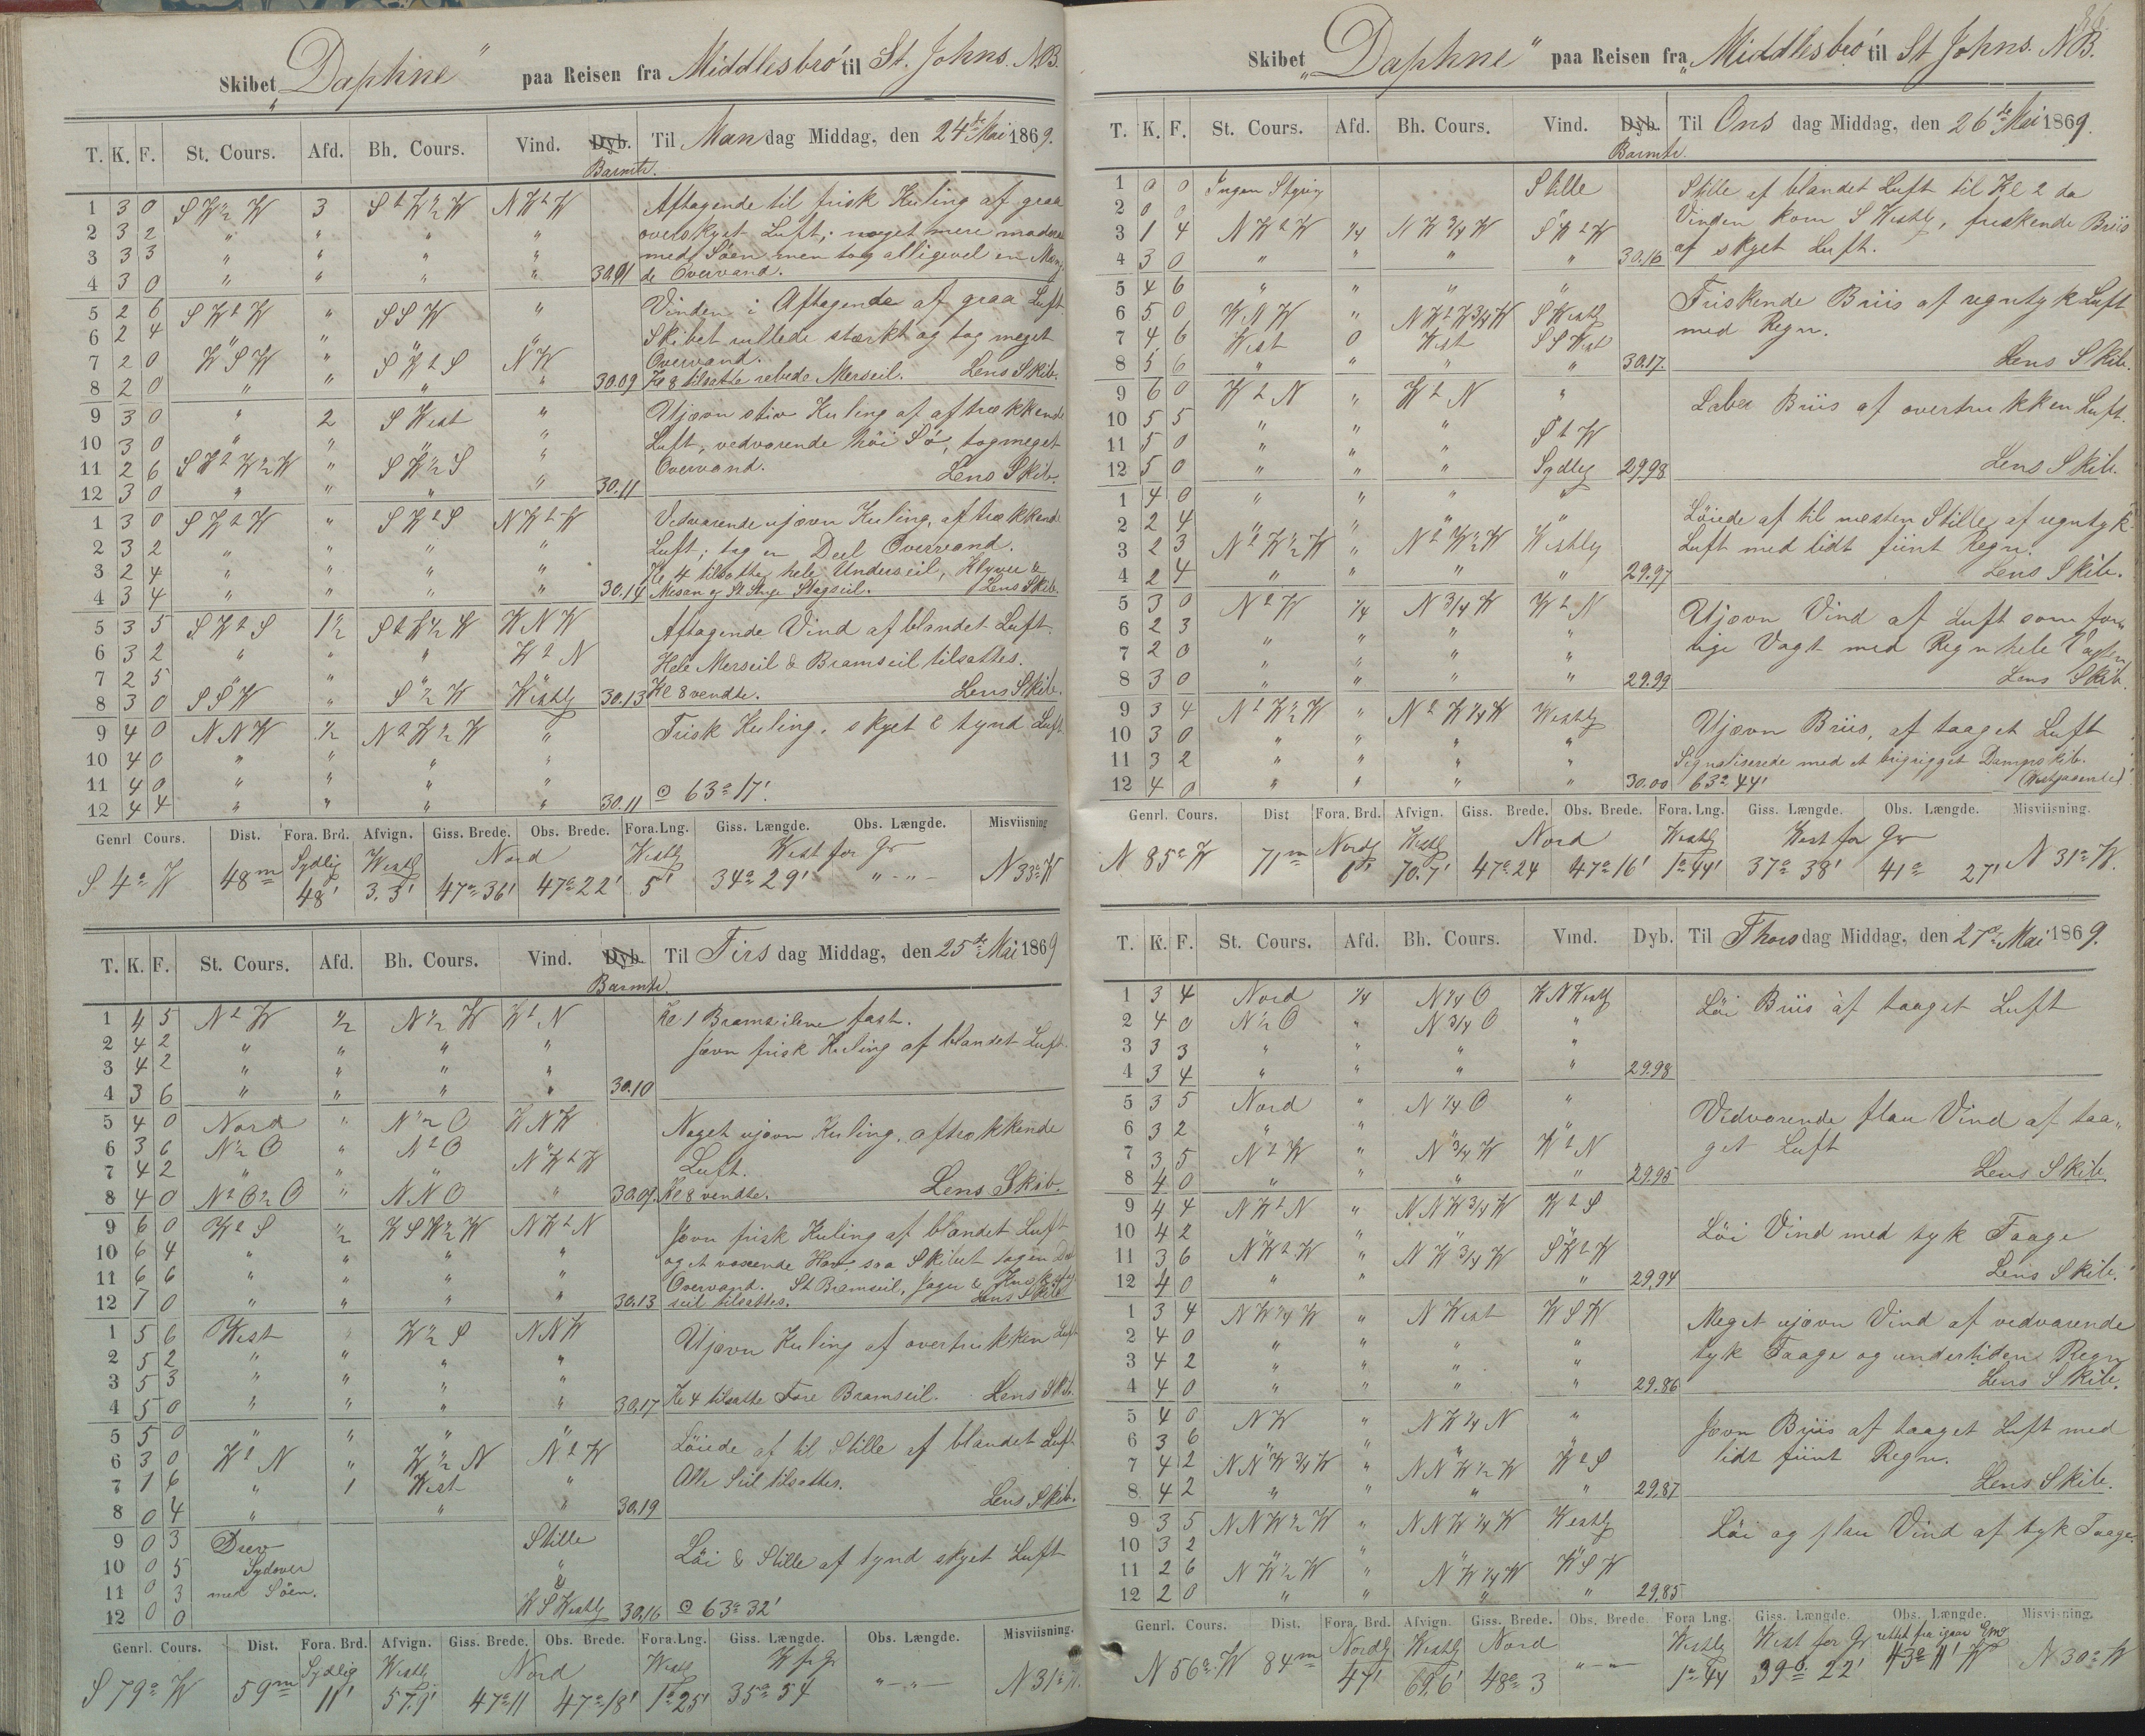 Skibet "Daphne" paa Reisen fra Middlesbro' til St. Johns. N.B.
T. K. F. St. Cours. Afd. Bh. Cours. Vind. Dyb. Barmtr. Til Mandag Middag, den 24de Mai 1869.
1 3 0 S W½ W 3 S t W½ W N W t W Aftagende til frisk Kuling af graa
2 3 2 " " " " overskyet Luft; noget mere moderat
3 3 3 " " " " med Søen men tog alligevel en Mæng-
4 3 0 " " " " 30.01 de Overvand.
5 2 6 S W t W " S S W " Vinden i Aftagende af graa Luft.
6 2 4 " " " " Skibet rullede stærkt og tog meget
7 2 0 W S W " S W t S N W Overvand.
8 2 0 " " " " 30.09 Kl 8 tilsatte rebede Merseil. Lens Skib.
9 3 0 " 2 S West " Ujævn stiv Kuling af aftrækkende
10 3 0 " " " " Luft, vedvarende høi Sø, tog meget
11 2 6 S W t W ½ W " S W ½ S " Overvand.
12 3 0 " " " " 30.11 Lens Skib.
1 3 0 S W t W " S W t S N W t W Vedvarende ujævn Kuling, aftrækkende
2 3 2 " " " " Luft; tog en Deel Overvand.
3 2 4 " " " " Kl 4 tilsatte hele Underseil, Klyver &
4 3 4 " " " " 30.14 Mesan og St. Stenge Stagseil. Lens Skib.
5 3 5 S W t S 1½ S t W ½ W W N W Aftagende Vind af blandet Luft.
6 3 2 " " " W t N Hele Merseil & Bramseil tilsattes.
7 2 5 " " " "
8 3 0 S S W " S ½ W Westlg 30.13 Kl 8 vendte. Lens Skib.
9 4 0 N N W ½ N t W ½ W " Frisk Kuling, skyet & tynd Luft
10 4 0 " " " "
11 4 0 " " " "
12 4 4 " " " " 30.11 ☉ 63° 17'.
Genrl Cours. Dist. Fora. Brd. Afvign. Giss. Brede. Obs. Brede. Fora. Lng. Giss. Længde. Obs. Længde. Misviisning
Sydlig Westlg Nord Westlg West for Gr
S 4° W 48m 48' 3.3' 47° 36' 47° 22' 5' 34° 29' " - " - N 33° W
T. K. F. St. Cours. Afd. Bh. Cours. Vind. Dyb. Barmtr. Til Tirsdag Middag, den 25de Mai 1869
1 4 5 N t W ½ N ½ W W t N Kl 1 Bramseilene fast.
2 4 2 " " " " Jævn frisk Kuling af blandet Luft.
3 4 2 " " " "
4 3 6 " " " " 30.10
5 4 0 Nord " N ½ O W N W Noget ujævn Kuling, aftrækkende
6 3 6 N ½ O " N t O " Luft.
7 4 2 " " " N W t W
8 4 0 N t O ½ O " N N O " 30.09 Kl 8 vendte. Lens Skib.
9 6 0 W t S ½ W S W ½ W N W t N Jævn frisk Kuling af blandet Luft
10 6 4 " " " " og et voxende Hav, saa Skibet tog en Deel
11 6 6 " " " " Overvand. St Bramseil, Jager &
12 7 0 " " " " 30.13 seil tilsattes. Lens Skib
1 5 6 West " W ½ S N N W Ujævn Kuling af overtrukken Luft
2 5 2 " " " "
3 5 3 " " " "
4 5 0 " " " " 30.17 Kl 4 tilsatte Fore Bramseil. Lens Skib.
5 5 0 " " " " Løiede af til Stille af blandet Luft
6 3 0 W t N " W ½ N N t W Alle Seil tilsattes.
7 1 6 " 1 West "
8 0 4 " " " 30.19 Lens Skib.
9 0 3 Drev Stille
10 0 5 Sydover " Løi & Stille af tynd skyet Luft
11 0 3 med Søen. "
12 0 0 W S Westlg 30.16 ☉ 63° 32'
Genrl. Cours. Dist. Fora. Brd. Afvign. Giss. Brede. Obs. Brede. Fora. Lng. Giss. Længde. Obs. Længde. Misviisning.
Sydlig Westlg Nord Westlg W for Gr
S 79° W 59m 11' 57.9' 47° 11 47° 18' 1° 25' 35° 54 " - " - N 31° W
Skibet "Daphne" paa Reisen fra "Middlesbro' til St Johns. N.B.
T. K. F. St. Cours. Afd. Bh. Cours. Vind. Dyb. Barmtr. Til Onsdag Middag, den 26de Mai 1869.
1 0 0 Ingen Styring Stille Stille af blandet Luft til Kl 2 da
2 0 0 Vinden kom S Westlg, friskende Briis
3 1 4 N W t W ¼ N W ¾ W S W t W af skyet Luft.
4 3 0 " " " " 30.16
5 4 6 " " " " Friskende Briis af regntyk Luft
6 5 0 W N W " N W t W ¾ W S Westlg med Regn.
7 4 6 West 0 West S S West
8 5 6 " " " " 30.17. Lens Skib.
9 6 0 W t N " W t N " Laber Briis af overtrukken Luft.
10 5 5 " " " "
11 5 0 " " " S t W
12 5 0 " " " Sydlig 29.98 Lens Skib.
1 4 0 " " " " Løiede af til næsten Stille, af regntyk
2 2 4 " " " " Luft med lidt fiint Regn.
3 2 3 N t W ½ W " N t W ½ W Westlg
4 2 4 " " " " 29.97 Lens Skib.
5 3 0 N t W ¼ N ¾ W W t N Ujævn Vind af Luft som for-
6 2 3 " " " " rige Vagt med Regn hele Vagten
7 2 0 " " " "
8 3 0 " " " " 29.99 Lens Skib.
9 3 4 N t W ½ W " N t W ¼ W Westlg Ujævn Briis, af taaget Luft
10 3 0 " " " "
11 3 2 " " " " Signaliserede med et brigrigget Dampskib.
12 4 0 " " " " 30.00 63° 44'
Genrl. Cours. Dist Fora. Brd. Afvign. Giss. Brede. Obs. Brede. Fora. Lng. Giss. Længde. Obs. Længde. Misviisning.
Nordlg Westlg Nord Westlg West for Gr
N 85° W 71m 6' 70.7' 47° 24 47° 16' 1° 44' 37° 38' 41° 27' N 31° W.
T. K. F. St. Cours. Afd. Bh. Cours. Vind. Dyb. Til Thorsdag Middag, den 27de Mai 1869.
1 3 4 Nord ¼ N ¼ O W N Westlg Løi Briis af taaget Luft
2 4 0 N ½ O " N ¾ O "
3 3 3 " " " "
4 3 4 " " " " 29.98
5 3 5 Nord " N ¼ O " Vedvarende flau Vind af taa-
6 3 2 " " " " get Luft
7 3 5 N t W " N ¾ W W t N
8 4 0 " " " " 29.95 Lens Skib.
9 4 4 N W t N " N N W ¾ W W t S Løi Vind med tyk Taage
10 4 2 " " " "
11 3 6 N W t W " N W ¾ W S W t W
12 4 0 " " " 29.94 Lens Skib.
1 3 4 N W ¼ W " N West W S W Meget ujævn Vind af vedvarende
2 4 0 " " " " tyk Taage og undertiden Regn
3 4 2 " " " "
4 4 0 " " " " 29.86 Lens Skib.
5 4 0 N W " N W ¼ N " Jævn Briis af taaget Luft med
6 3 6 " " " " lidt fiint Regn.
7 4 2 N N W ¾ W " N N W ½ W W t S
8 4 2 " " " " 29.87 Lens Skib.
9 3 5 N N W ½ W " N N W ¼ W Westlg Løi og flau Vind af tyk Taage.
10 3 2 " " " "
11 2 6 N W ½ W " N W ¼ W W S W
12 2 0 " " " " 29.85
Genrl. Cours. Dist. Fora. Brd. Afvign. Giss. Brede. Obs. Brede. Fora Lng. Giss. Længde. Obs. Længde. Misvisning.
Nordlg Westlg Nord Westlg West for Gr rettet fra igaar
N 56° W 84m 47' 69.6' 48° 3 " - " 1° 44 39° 22' 43° 11' W N 30° W